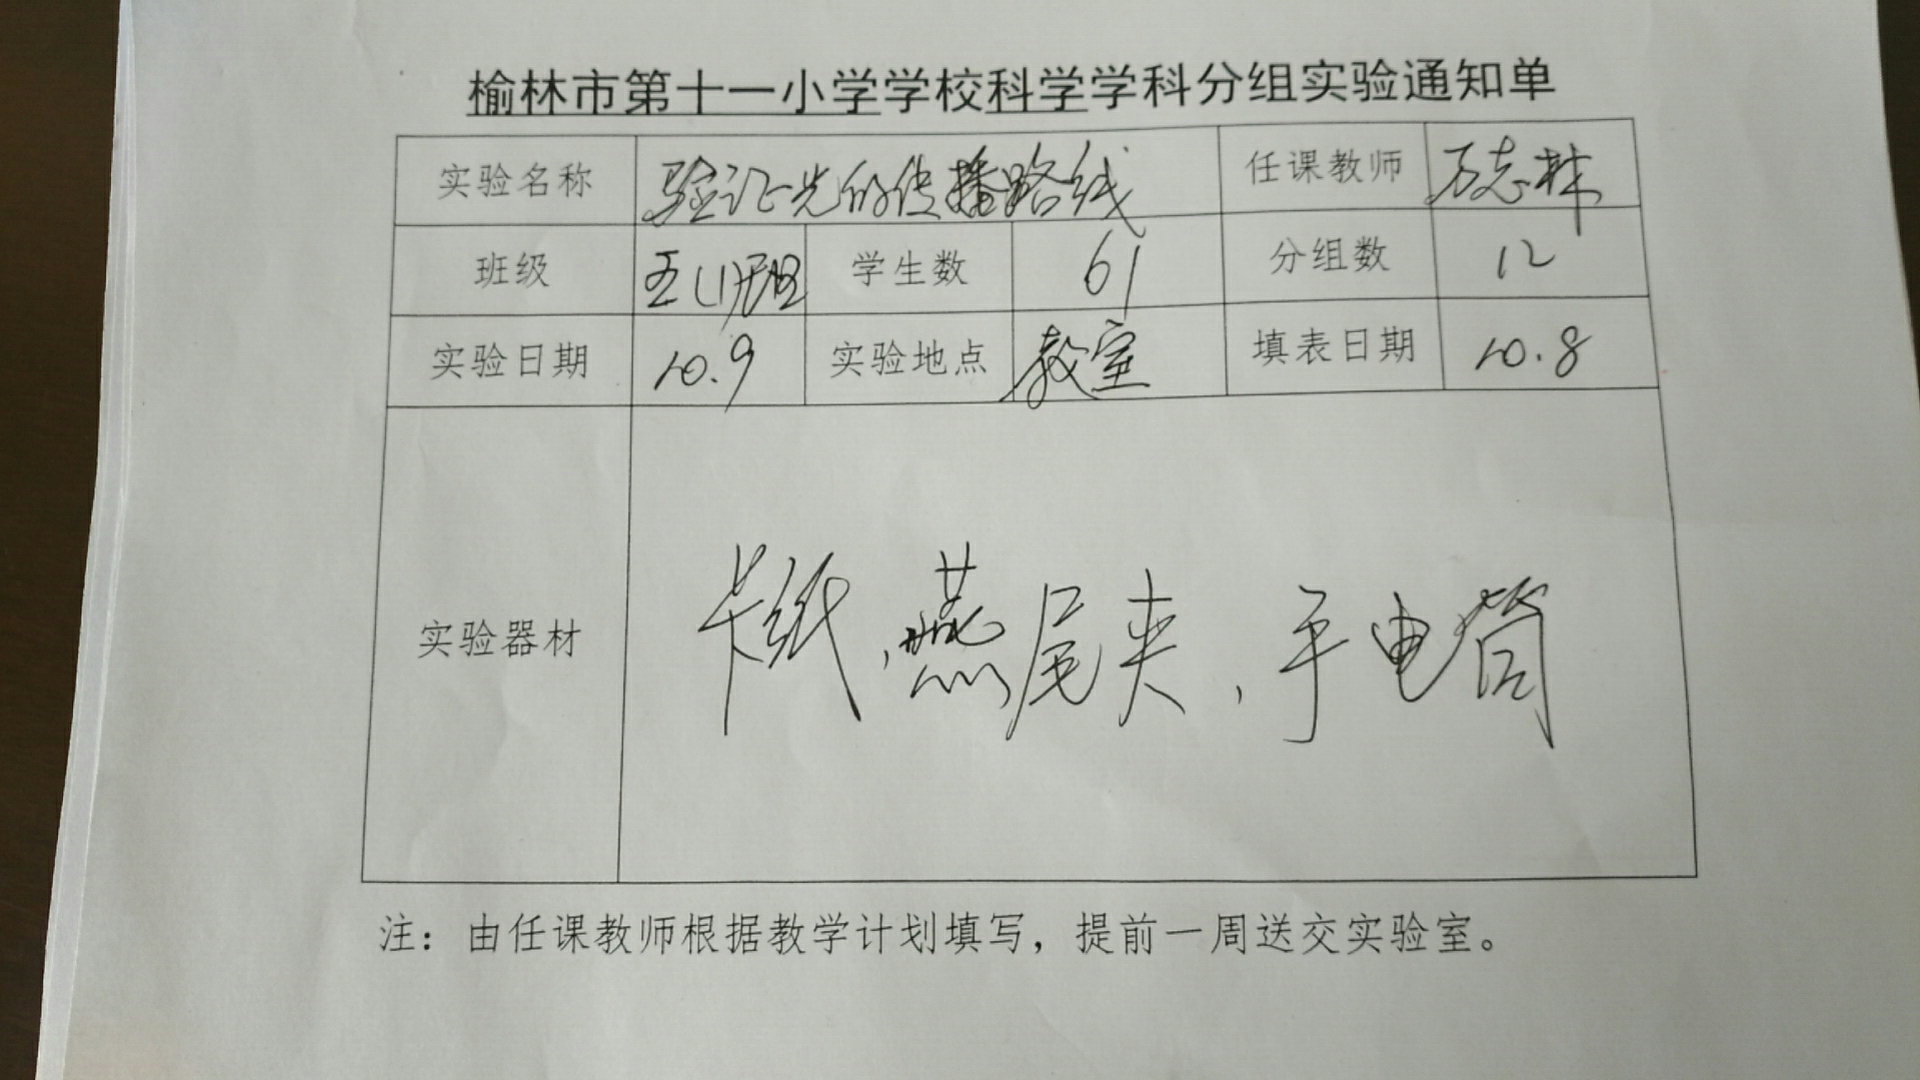 榆林市第十一小学学校科学学科分组实验通知单
实验名称 验证光的传播路线 任课教师 万志林
班级 五(1)班 学生数 61 分组数 12
实验日期 10.9 实验地点 教室 填表日期 10.8
实验器材 卡纸、燕尾夹、手电筒
注：由任课教师根据教学计划填写，提前一周送交实验室。